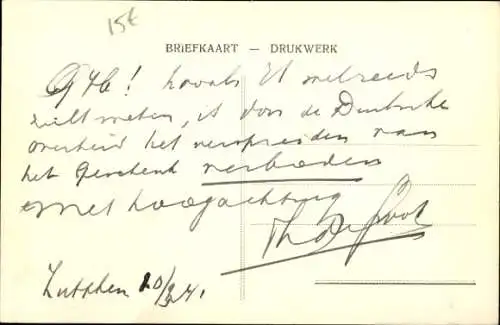 15€
BRIEFKAART — DRUKWERK
zooals U wel reeds
zult weten, is door de Duitsche
overheid het verspreiden van
het Geschenk verboden
Met hoogachting
Th De Groot
Zutphen 20/3 41.